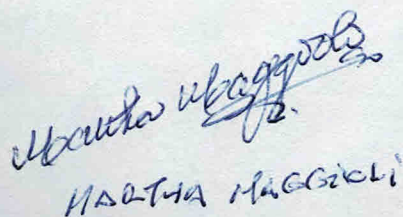 Martha Maggioli
MARTHA MAGGIOLI